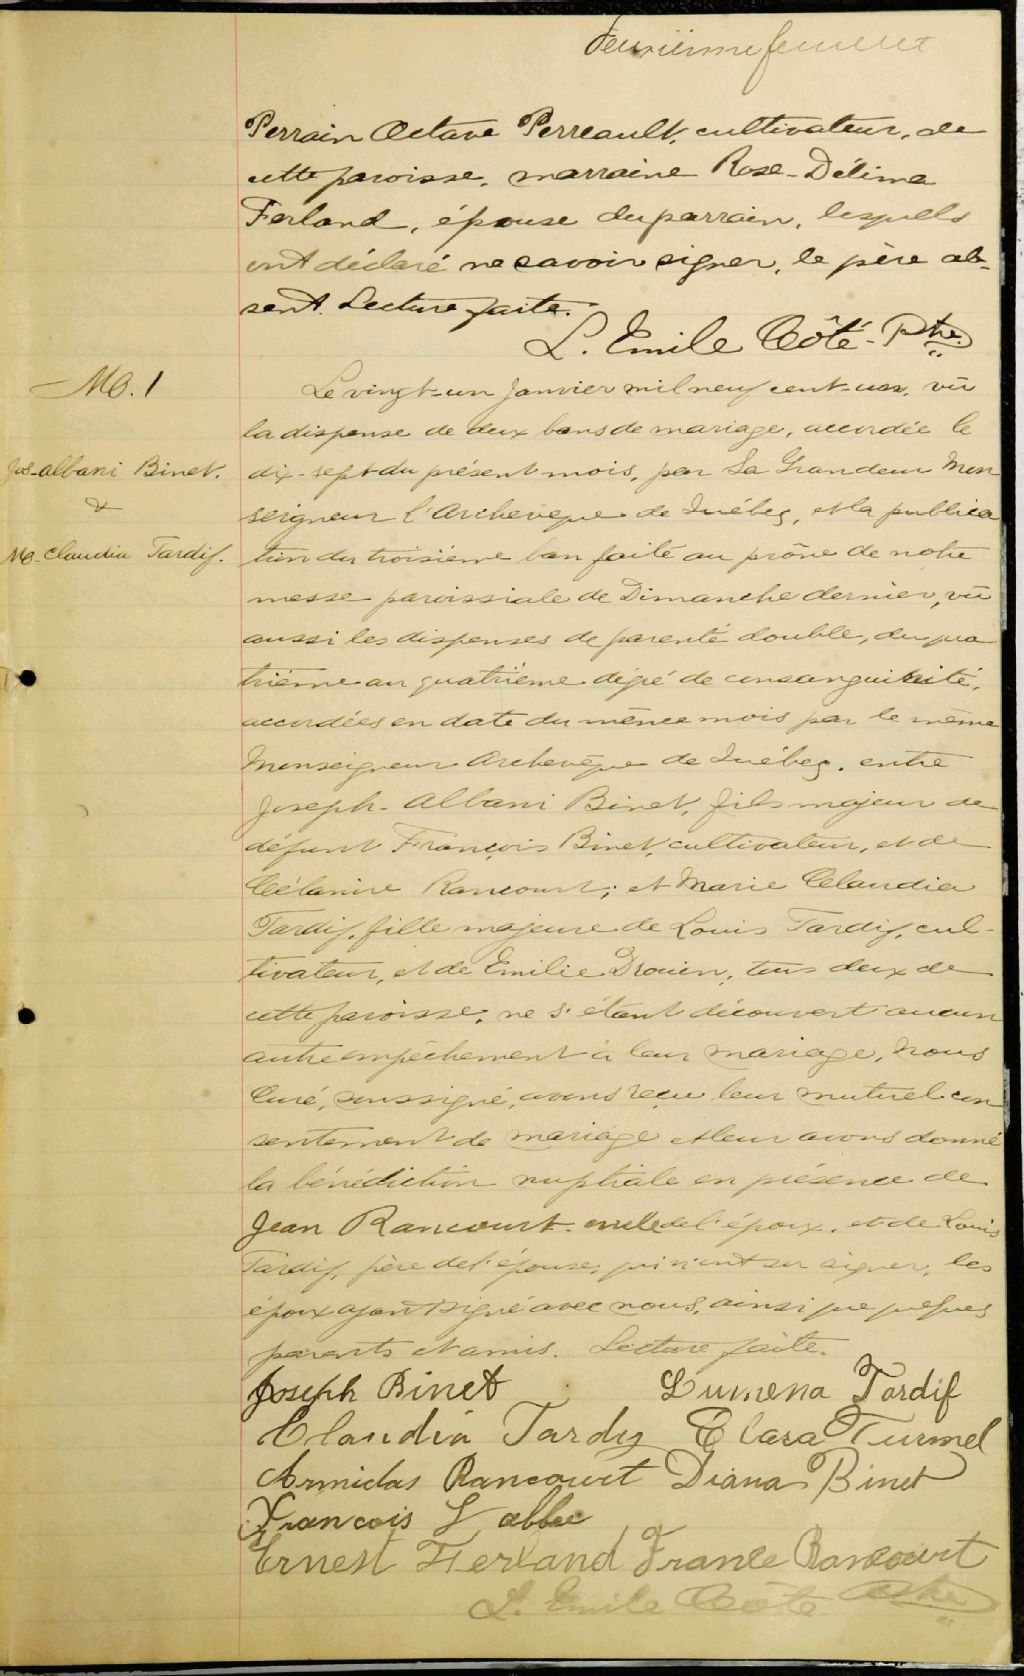 deuxième feuillet
Perrain Octave Perreault, cultivateur, de
cette paroisse, marraine Rose-Délima
Ferland, épouse du parrain, lesquels
ont déclaré ne savoir signer, le père ab-
sent. Lecture faite.
L. Emile Côté Ptre
M. 1
Jos-Albani Binet.
&
M-Claudia Tardif.
Le vingt-un Janvier mil neuf cent-un, vû
la dispense de deux bans de mariage, accordée le
dix-sept du présent mois, par Sa Grandeur Mon
seigneur l'Archevêque de Québec, et la publica
tion du troisième ban faite au prône de notre
messe paroissiale de Dimanche dernier, vû
aussi les dispenses de parenté double, du qua
trième au quatrième dégré de consanguinité,
accordées en date du même mois par le même
Monseigneur Archevêque de Québec, entre
Joseph-Albani Binet, fils majeur de
défunt François Binet, cultivateur, et de
Célanire Rancourt; et Marie Claudia
Tardif, fille majeure de Louis Tardif, cul-
tivateur, et de Emilie Drouin, tous deux de
cette paroisse, ne s'étant découvert aucun
autre empêchement à leur mariage, Nous
Curé, soussigné, avons reçu leur mutuel con
sentement de mariage et leur avons donné
la bénédiction nuptiale en présence de
Jean Rancourt oncle de l'époux, et de Louis
Tardif, père de l'épouse, qui n'ont su signer, les
époux ayant signé avec nous, ainsi que quelques
parents et amis. Lecture faite.
Joseph Binet Lumena Tardif
Claudia Tardif Clara Turmel
Armidas Rancourt Diana Binet
Francois Labbee
Ernest Ferland France Rancourt
L. Emile Côté Ptre